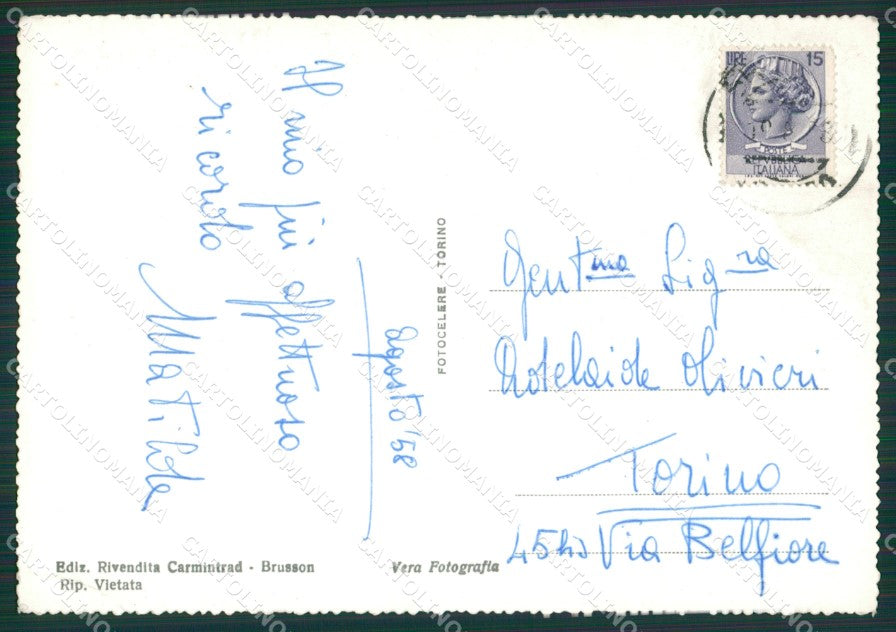 Il mio più affettuoso
ricordo
Matilde
agosto '58
FOTOCELERE - TORINO
LIRE 15
POSTE
REPVBBLICA
ITALIANA
Gent.ma Sig.ra
Adelaide Olivieri
Torino
Via Belfiore
Ediz. Rivendita Carmintrad - Brusson
Rip. Vietata
Vera Fotografia
CARTOLINOMANIA